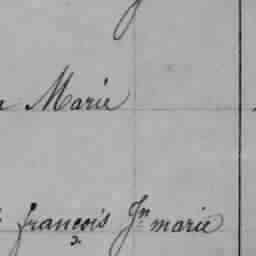 Marie
françois Jn marie